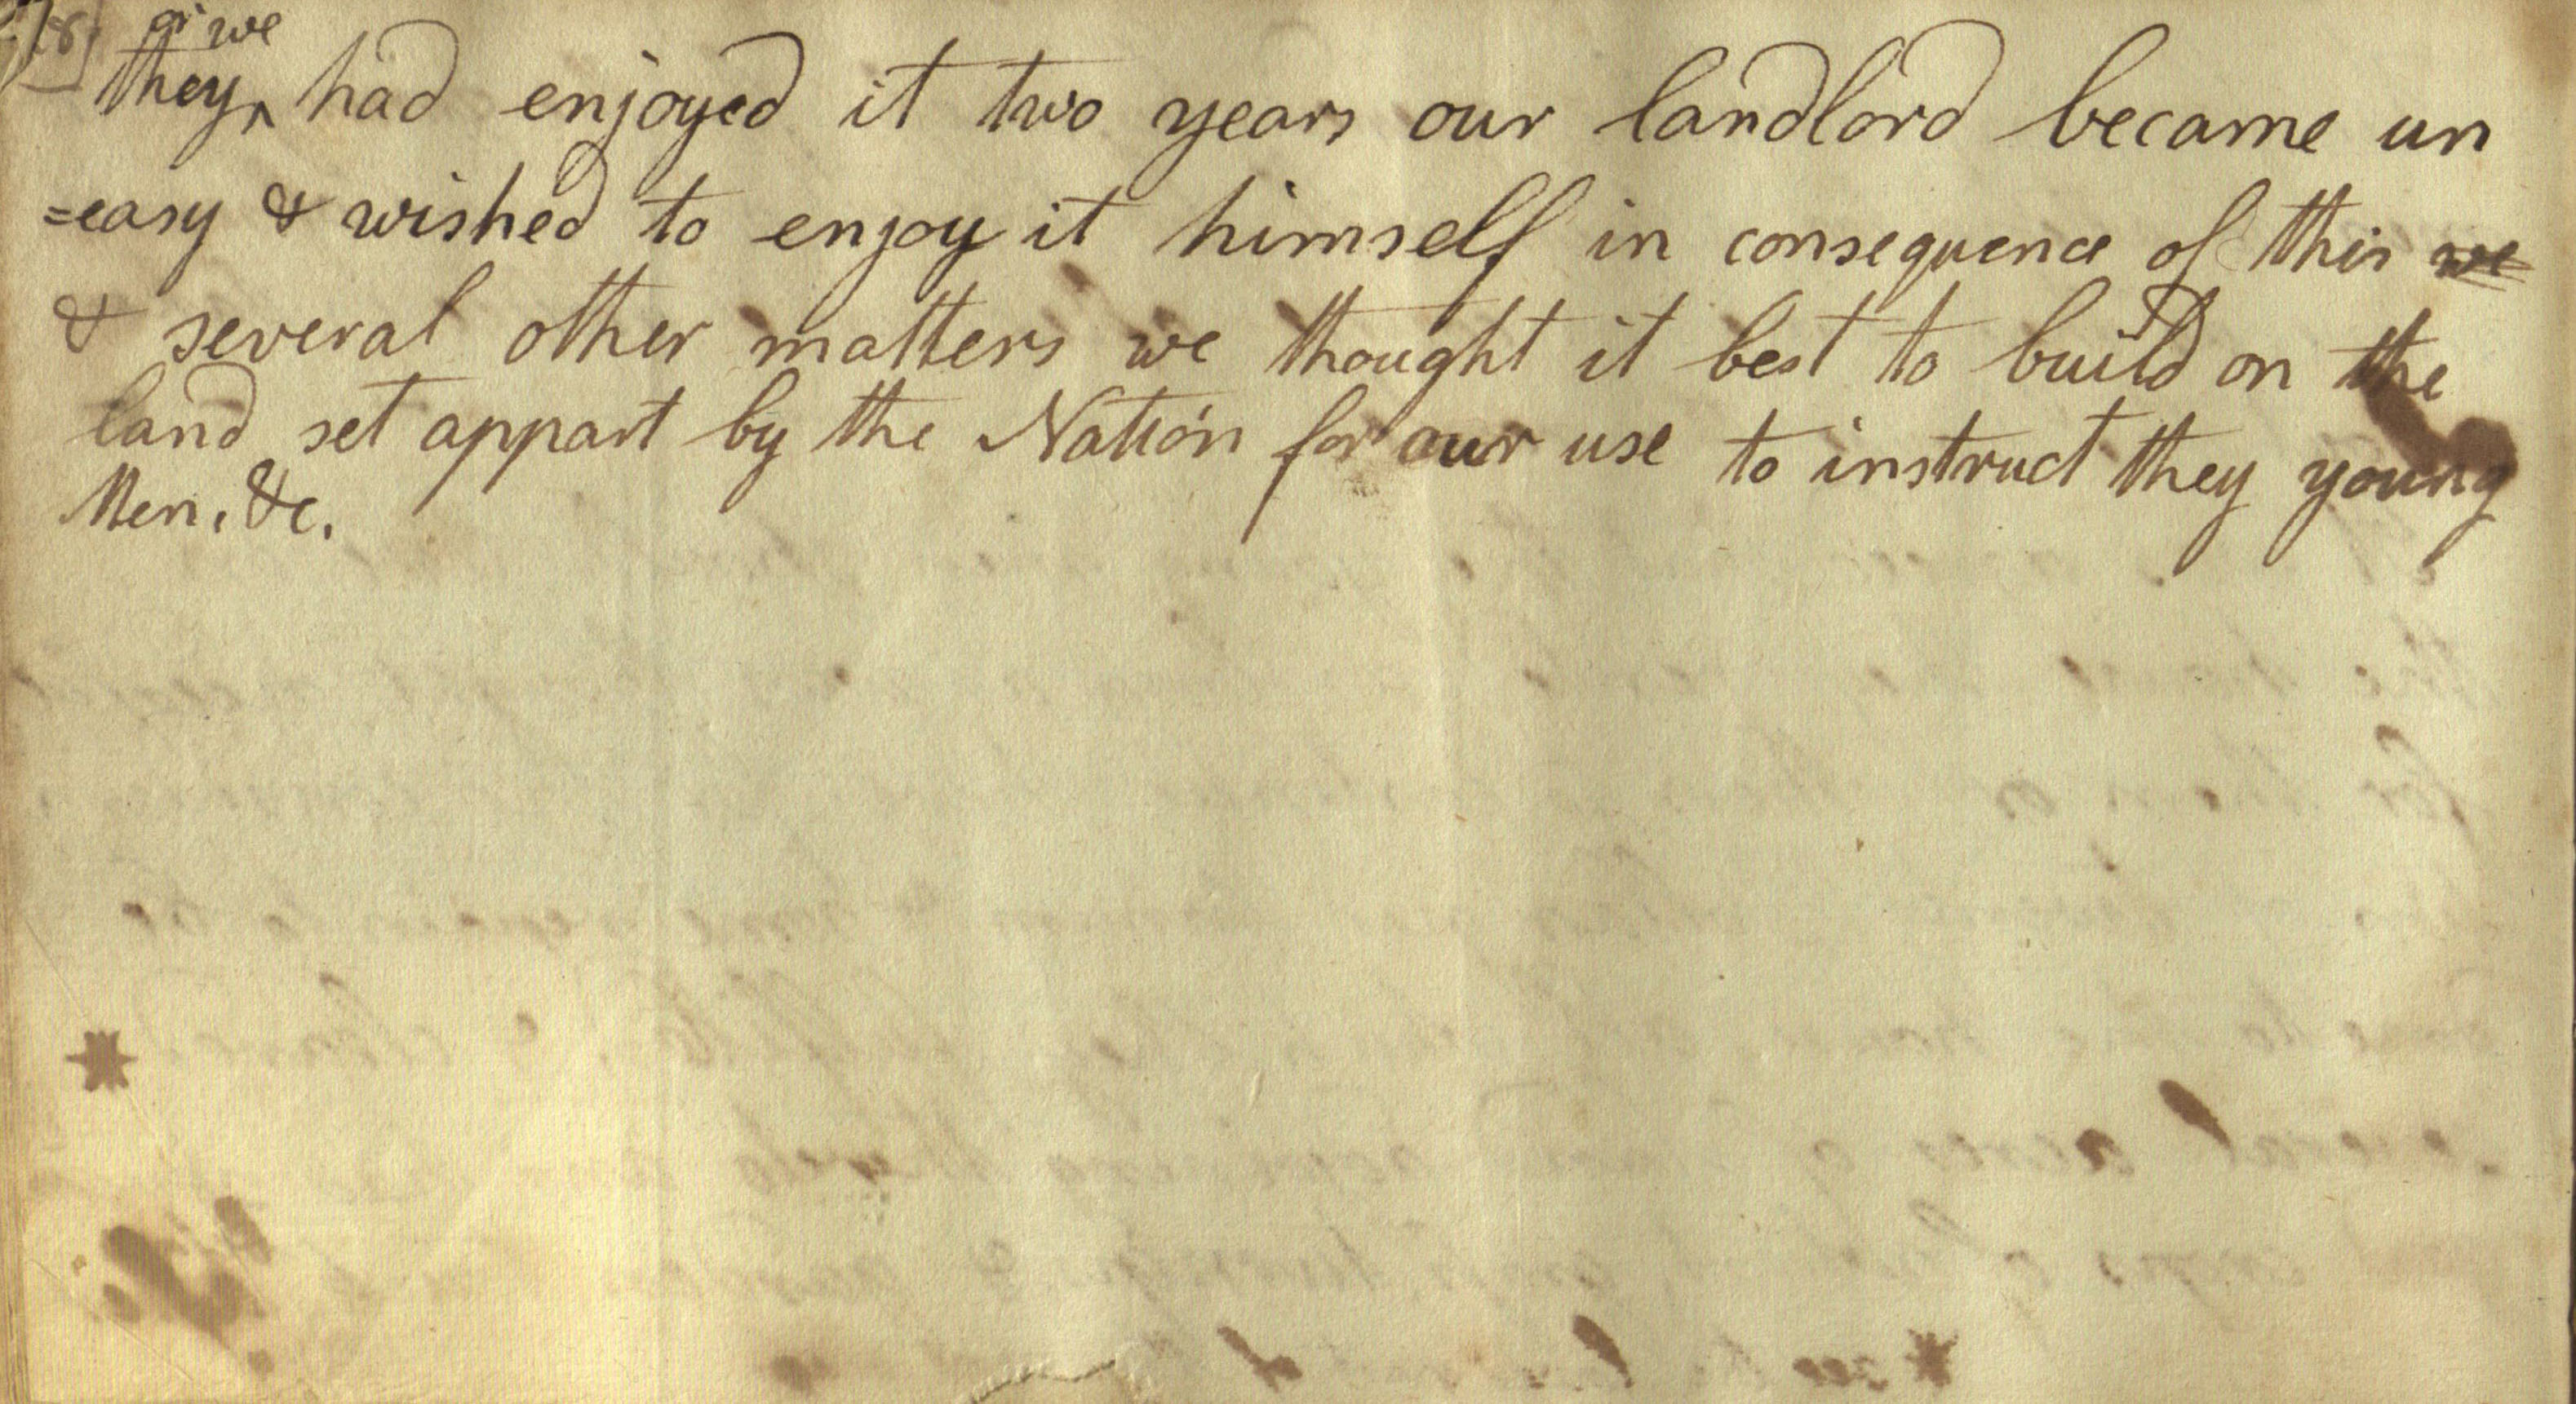 or we
they ^ had enjoyed it two years our landlord became un
=easy & wished to enjoy it himself in consequence of this we
& several other matters we thought it best to build on the
land set appart by the Nation for our use to instruct they young
Men, &c.